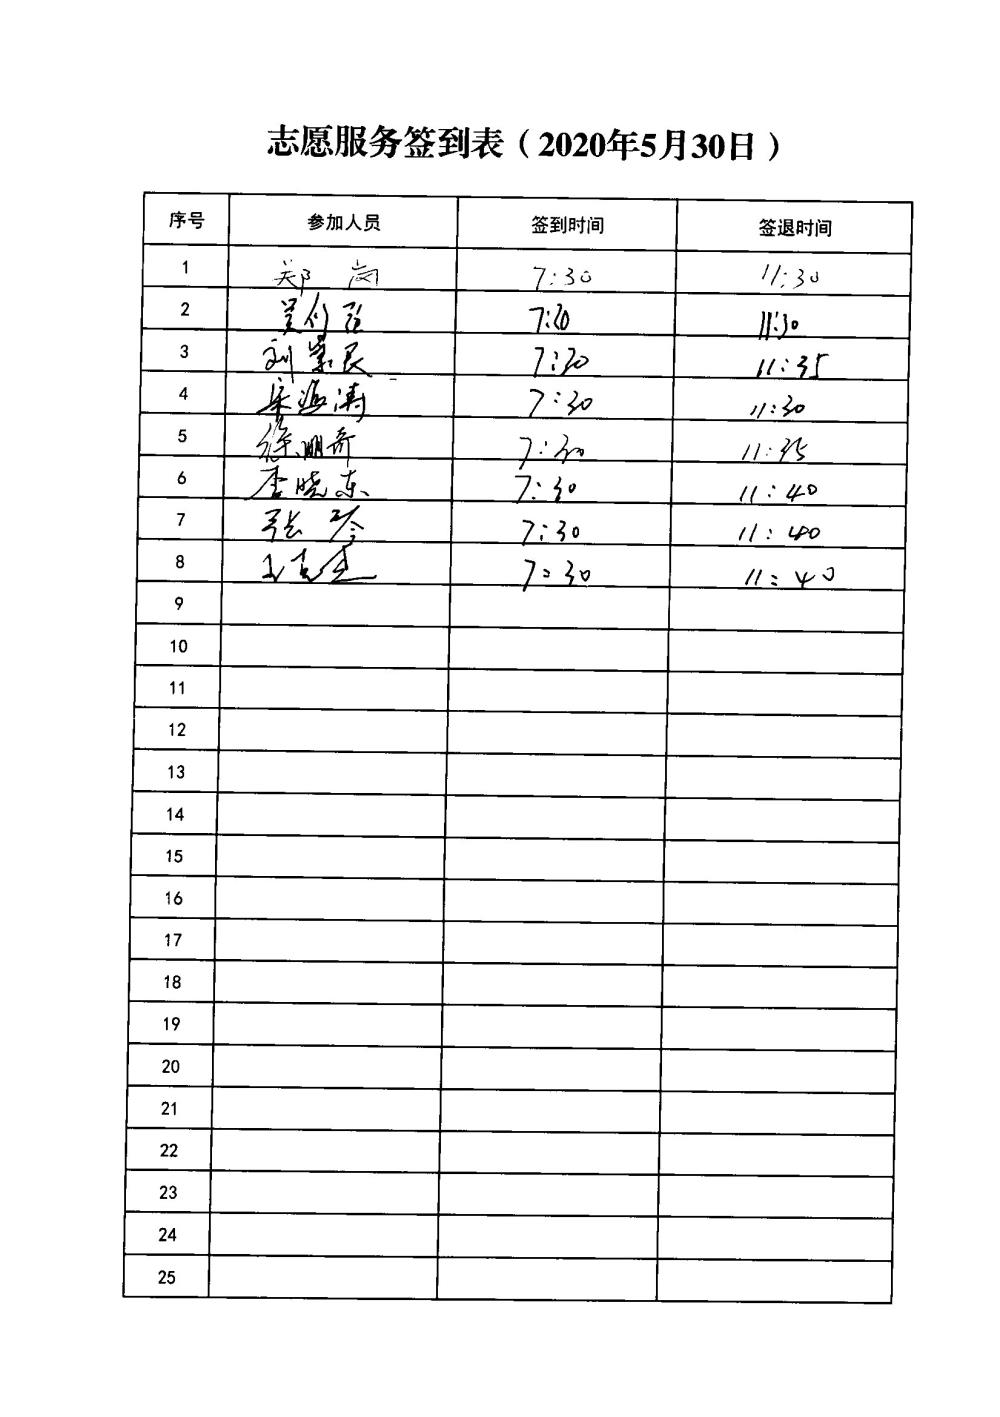 志愿服务签到表（2020年5月30日）
序号 参加人员 签到时间 签退时间
1 郑 岗 7:30 11:30
2 7:30 11:30
3 刘 民 7:30 11:35
4 涛 7:30 11:30
5 徐朋奇 7:30 11:35
6 李晓东 7:30 11:40
7 张 琴 7:30 11:40
8 王克 7:30 11:40
9
10
11
12
13
14
15
16
17
18
19
20
21
22
23
24
25